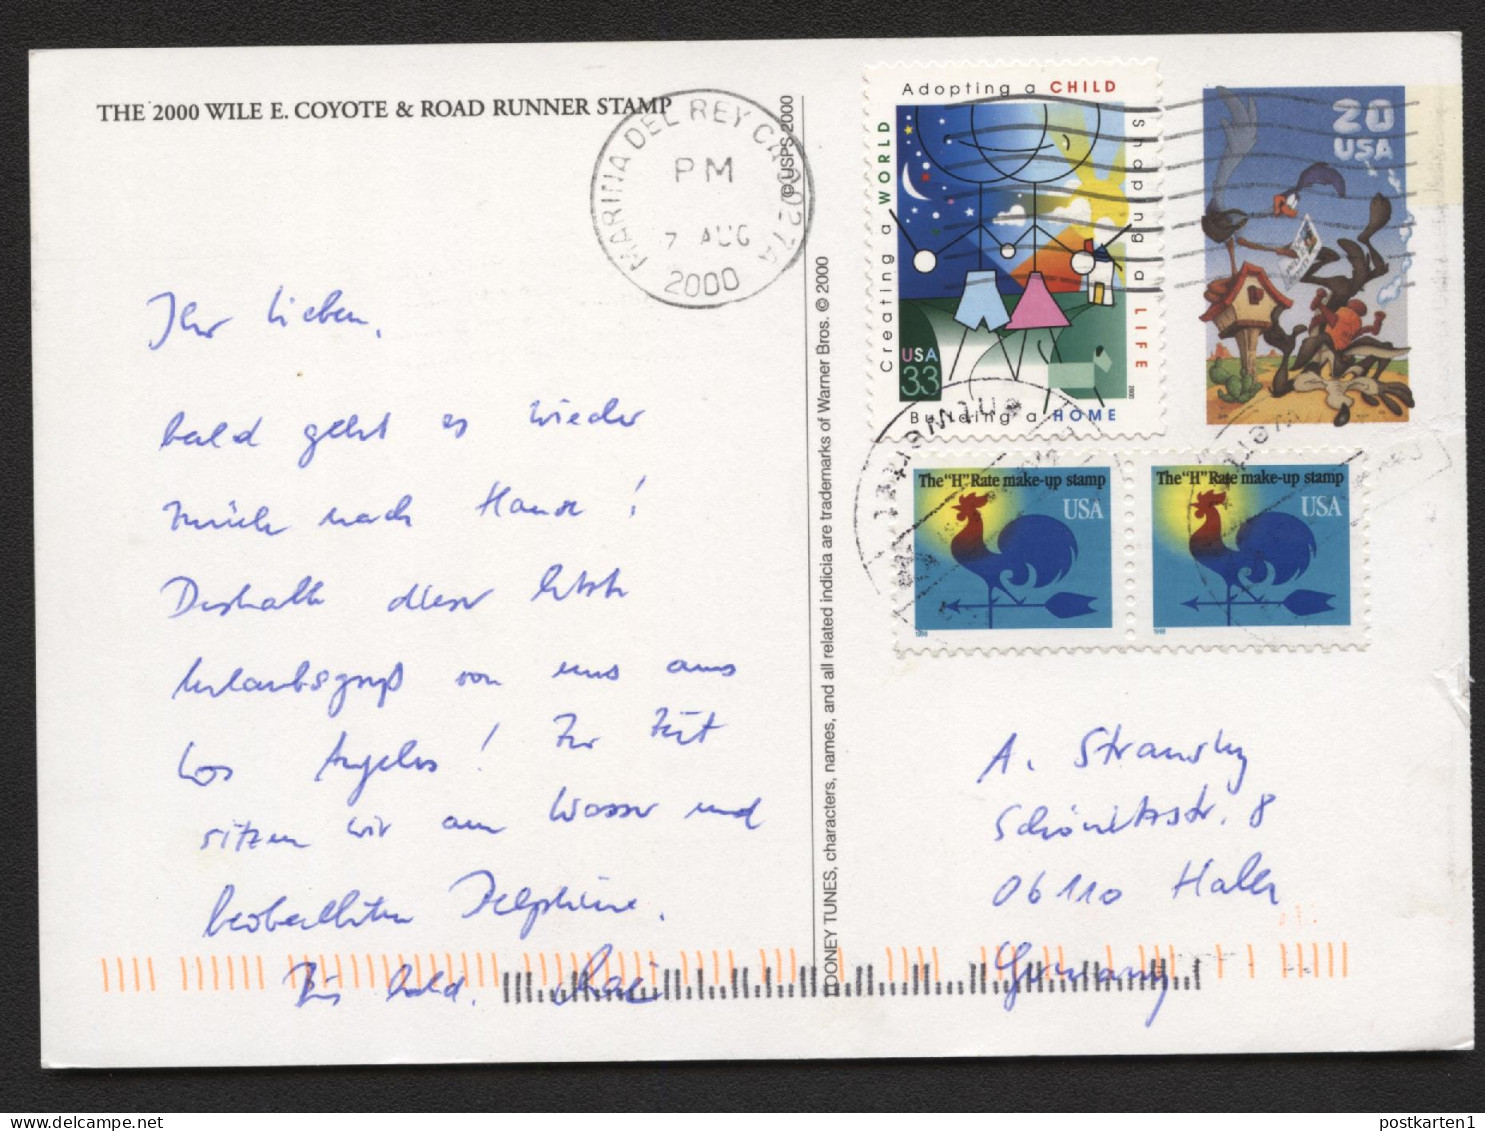 THE 2000 WILE E. COYOTE & ROAD RUNNER STAMP
© USPS 2000
MARINA DEL REY CA 90
PM
7 AUG
2000
Adopting a CHILD
Shaping a LIFE
Creating a WORLD
Building a HOME
USA
33
2000
20
USA
The "H" Rate make-up stamp
USA
1998
The "H" Rate make-up stamp
USA
1998
Ihr Lieben,
bald geht es wieder
zurück nach Hause!
Deshalb dieser letzte
Urlaubsgruß von uns aus
Los Angeles! Zur Zeit
sitzen wir am Wasser und
beobachten Delphine.
Bis bald.
LOONEY TUNES, characters, names, and all related indicia are trademarks of Warner Bros. © 2000
A. Stransky
Schönitzstr. 8
06110 Halle
Germany
postkarten1
www.delcampe.net